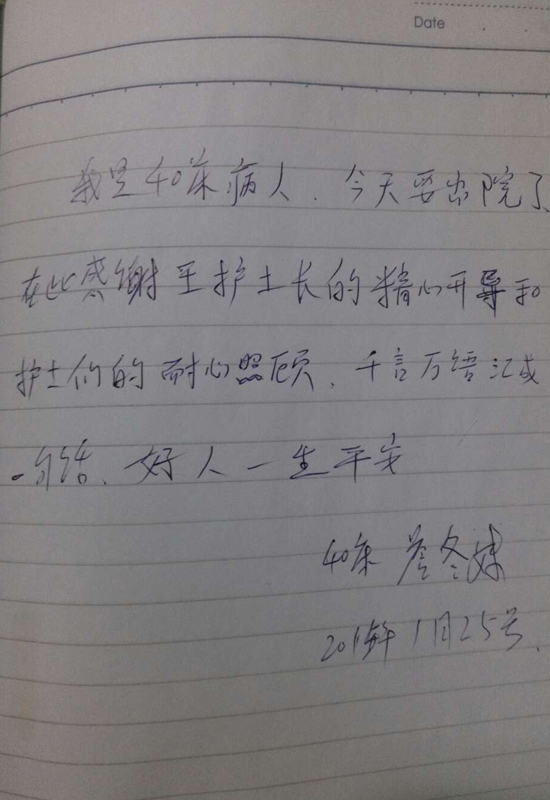 Date
我是40床病人．今天要出院了
在此感谢王护士长的精心开导和
护士们的耐心照顾．千言万语汇成
一句话、好人一生平安
40床 詹冬妹
1月25号.